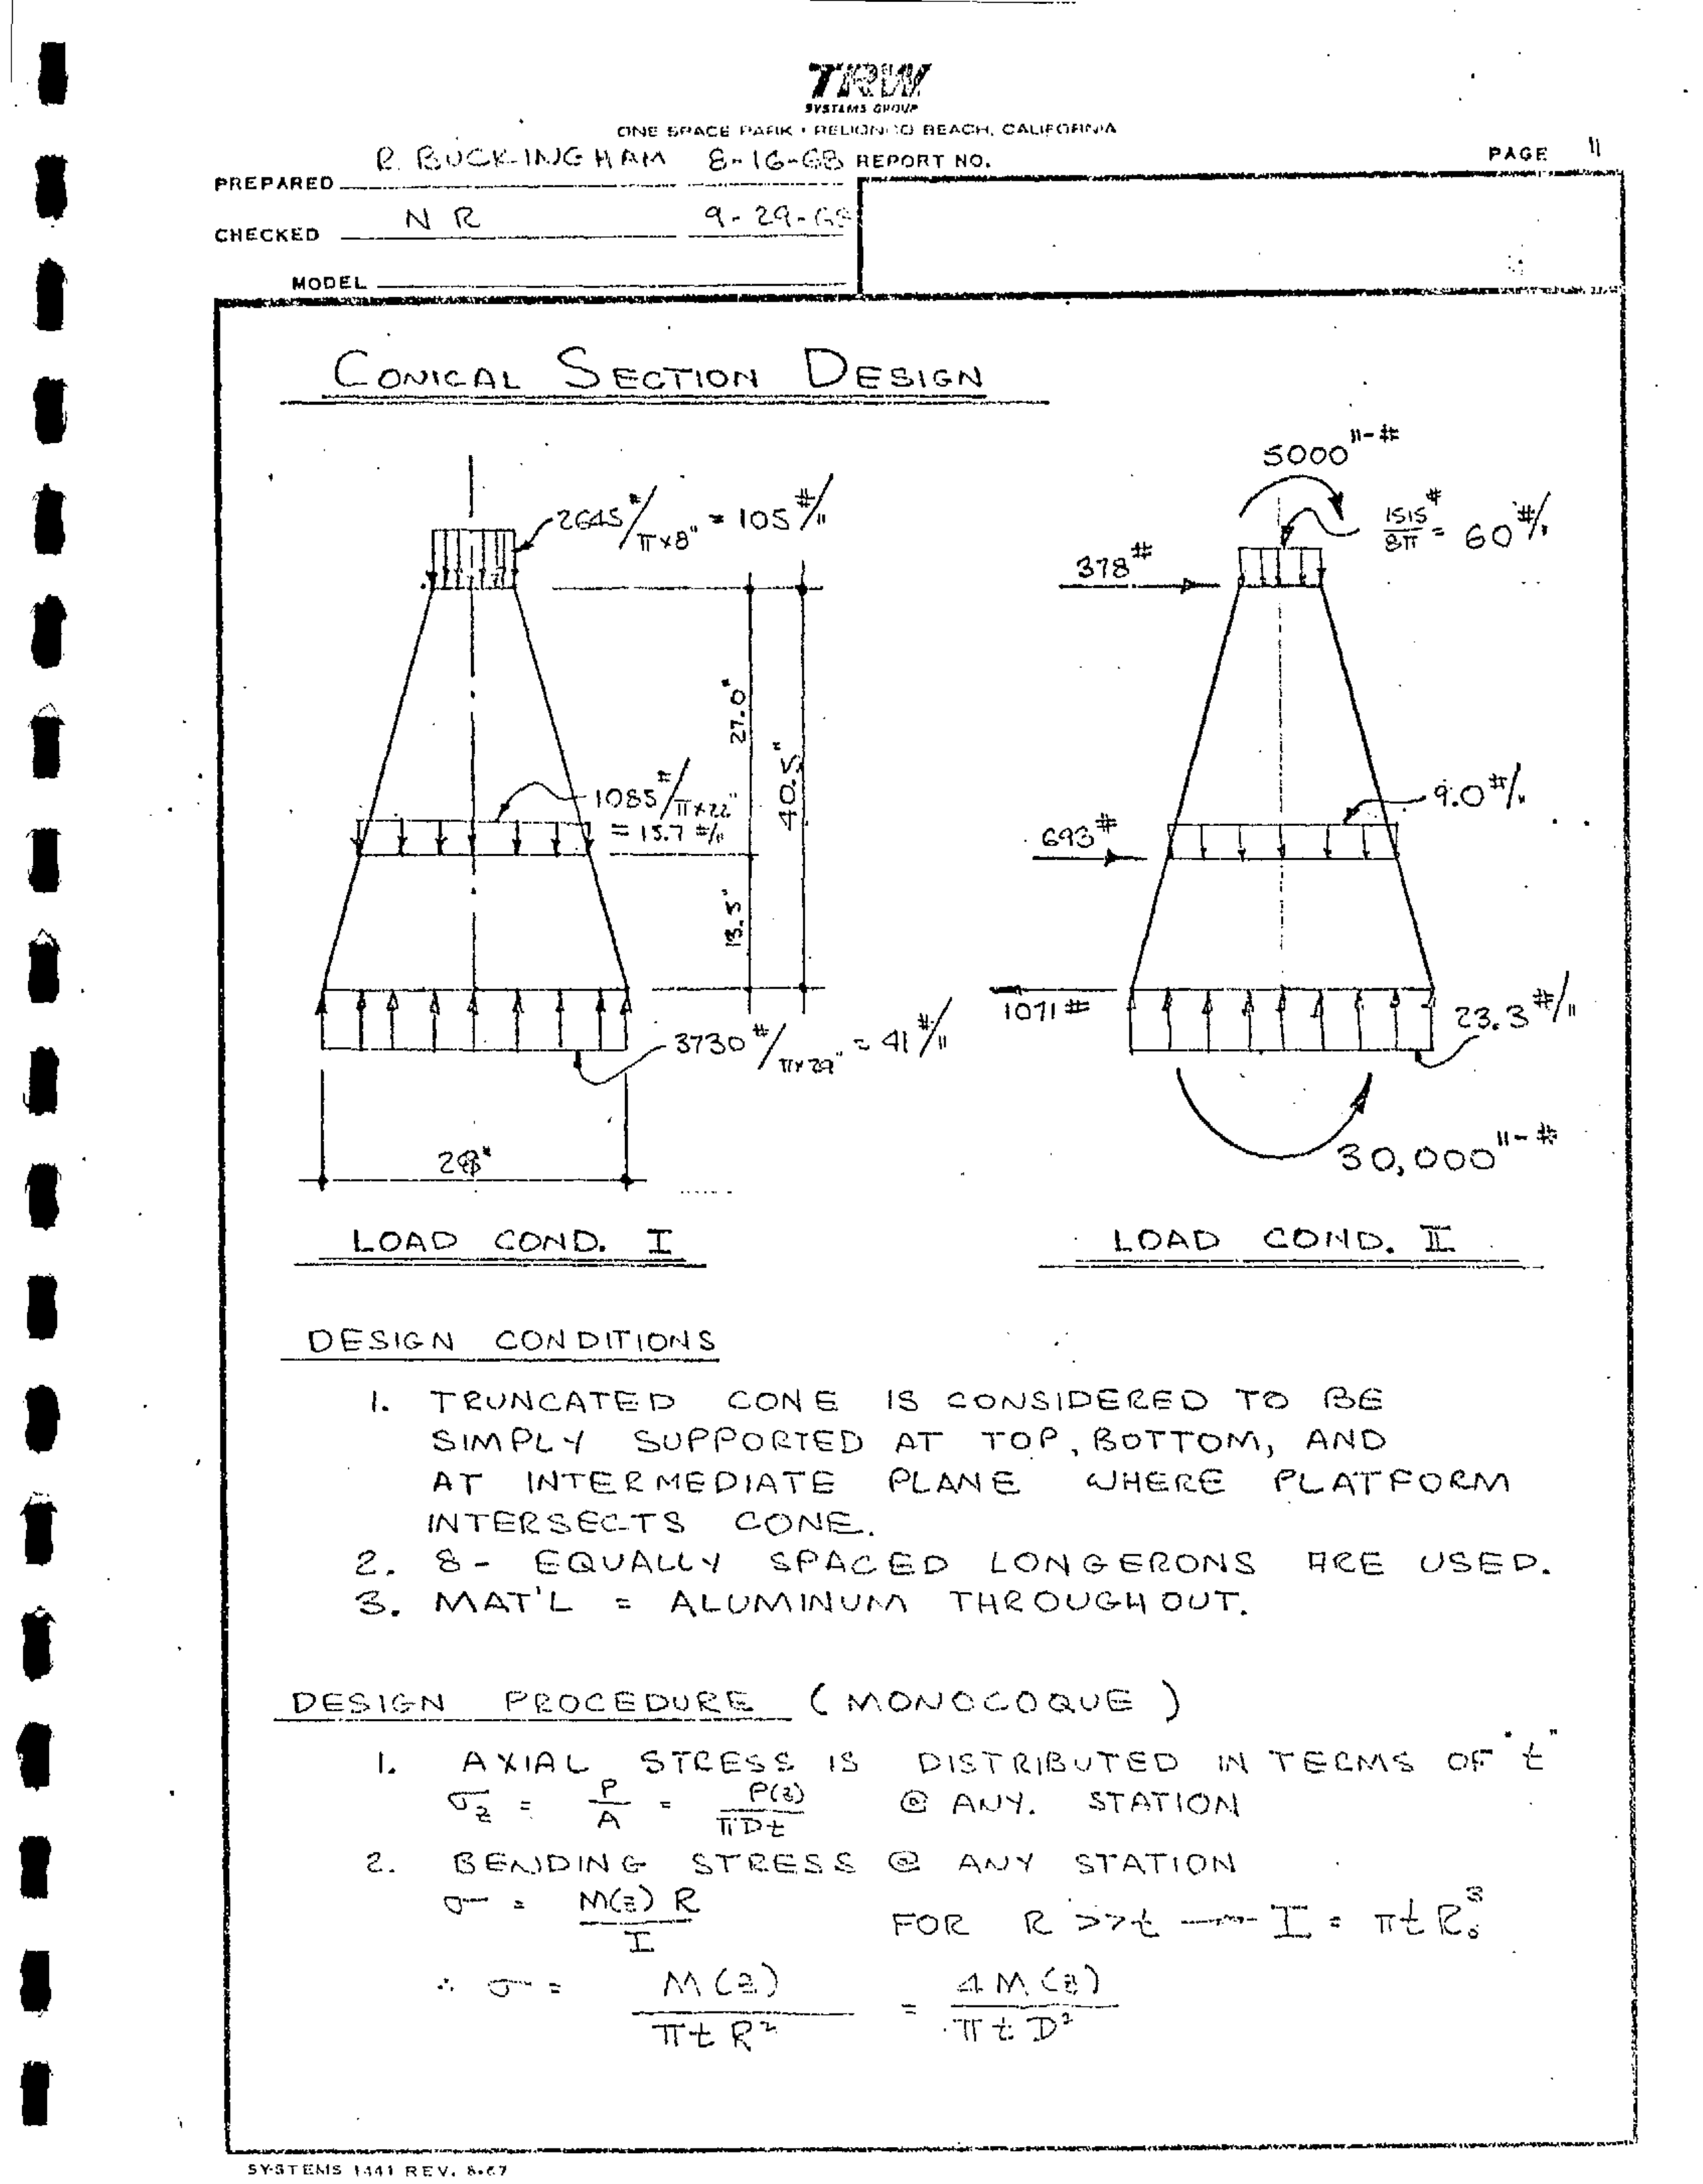 TRW
SYSTEMS GROUP
ONE SPACE PARK • REDONDO BEACH, CALIFORNIA
PREPARED R. BUCKINGHAM 8-16-68 REPORT NO. PAGE 11
CHECKED N R 9-29-68
MODEL
CONICAL SECTION DESIGN
2645#/π×8" = 105 #/"
27.0"
40.5"
1085#/π×22"
= 15.7 #/"
13.5"
3730#/π×29" = 41 #/"
LOAD COND. I
5000"-#
1515#/8π = 60 #/"
378#
9.0 #/"
693#
1071#
23.3 #/"
30,000"-#
LOAD COND. II
DESIGN CONDITIONS
1. TRUNCATED CONE IS CONSIDERED TO BE
SIMPLY SUPPORTED AT TOP, BOTTOM, AND
AT INTERMEDIATE PLANE WHERE PLATFORM
INTERSECTS CONE.
2. 8 - EQUALLY SPACED LONGERONS ARE USED.
3. MAT'L = ALUMINUM THROUGHOUT.
DESIGN PROCEDURE (MONOCOQUE)
1. AXIAL STRESS IS DISTRIBUTED IN TERMS OF "t"
σz = P/A = P(z)/πDt @ ANY. STATION
2. BENDING STRESS @ ANY STATION
σ = M(z) R/I FOR R >> t → I = πtR³
∴ σ = M(z)/πtR² = 4M(z)/πtD²
SYSTEMS 1441 REV. 8-67